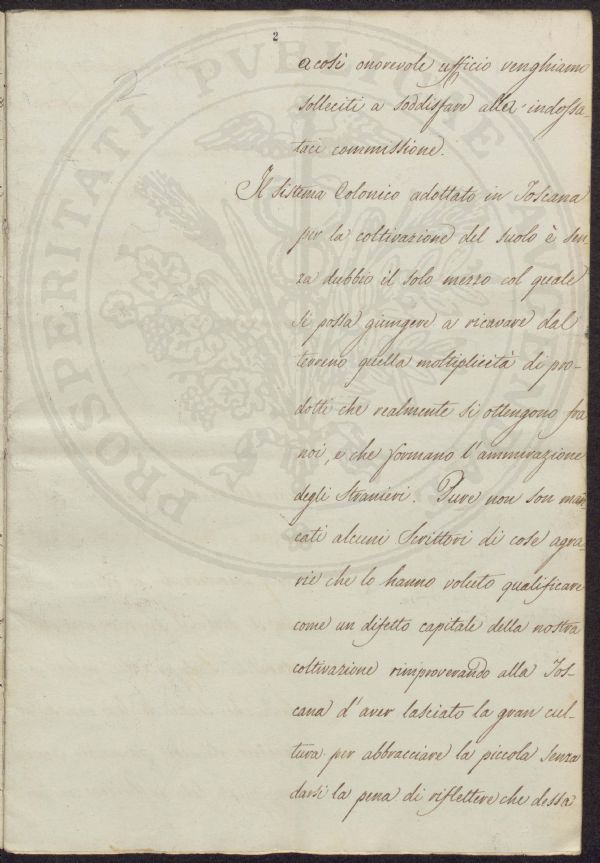 2
a così onorevole ufficio venghiamo
solleciti a soddisfare alla indossa-
taci commissione.
Il sistema Colonico adottato in Toscana
per la coltivazione del suolo è sen-
za dubbio il solo mezzo col quale
si possa giungere a ricavare dal
terreno quella moltiplicità di pro-
dotti che realmente si ottengono fra
noi, e che formano l'ammirazione
degli Stranieri. Pure non son man-
cati alcuni Scrittori di cose agra-
rie che lo hanno voluto qualificare
come un difetto capitale della nostra
coltivazione rimproverando alla Tos-
cana d'aver lasciato la gran cul-
tura per abbracciare la piccola senza
darsi la pena di riflettere che dessa
PROSPERITATI PVBLICAE AVGENDAE